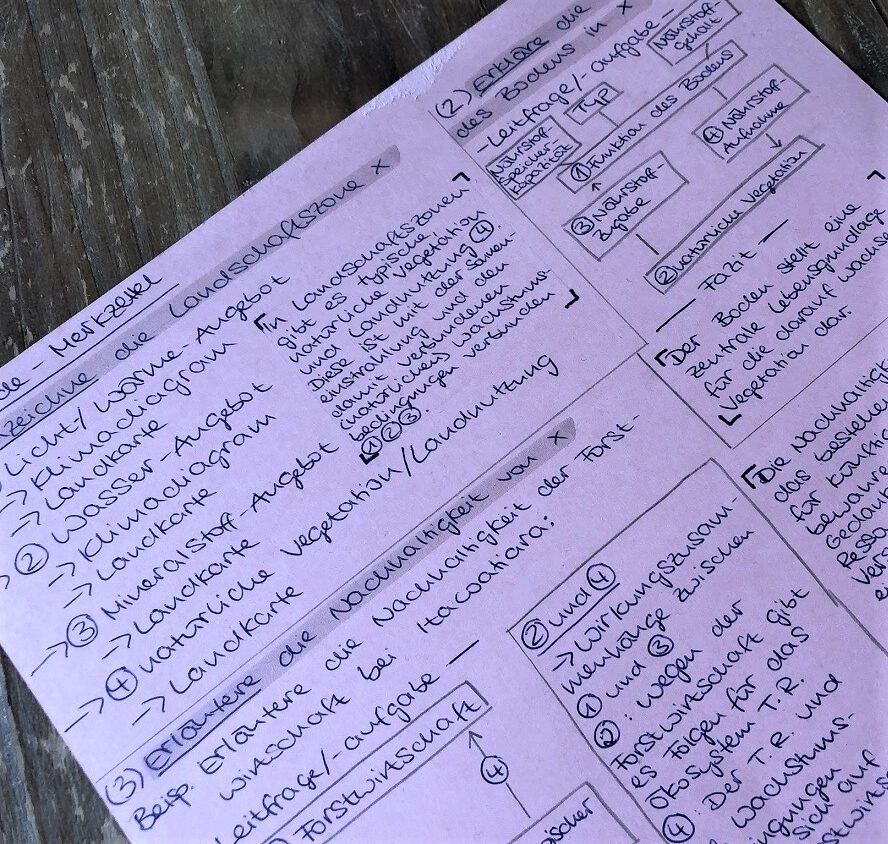 de - Merkzettel
zeichne die Landschaftszone X
Licht-/Wärme-Angebot
-> Klimadiagram
-> Landkarte
-> ② Wasser-Angebot
-> Klimadiagram
-> Landkarte
-> ③ Mineralstoff-Angebot
-> Landkarte
-> ④ natürliche Vegetation/Landnutzung
-> Landkarte
In Landschaftszonen
gibt es typische
natürliche Vegetation
und Landnutzung ④.
Diese ist mit der Sonnen-
einstrahlung und den
damit verbundenen
(natürlichen) Wachstums-
bedingungen verbunden
①②③.
(2) Erkläre die
des Bodens in X
- Leitfrage/-aufgabe -
Nährstoff-
gehalt
Typ
Nährstoff-
speicher-
kapazität
① Funktion des Bodens
④ Nährstoff-
Aufnahme
③ Nährstoff-
zugabe
② natürliche Vegetation
— Fazit —
Der Boden stellt eine
zentrale Lebensgrundlage
für die darauf wachse
Vegetation dar.
(3) Erläutere die Nachhaltigkeit von X
Beisp. Erläutere die Nachhaltigkeit der Forst-
wirtschaft bei Itacoatiara:
Leitfrage/-aufgabe —
Forstwirtschaft
④
② und ④
-> Wirkungszusam-
menhänge zwischen
① und ③
②: Wegen der
Forstwirtschaft gibt
es Folgen für das
Ökosystem T.R.
④: Der T.R. und
Wachstums-
ingungen
sich auf
Die Nachhaltig
das bestehe
für künftig
bewahre
Gedank
Resso